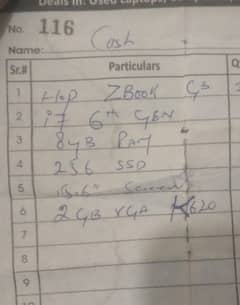 Deals in: Used Laptops,
No. 116
Name: Cash
Sr.# Particulars Q
1 Hp ZBook G3
2 i7 6th GEN
3 8GB RAM
4 256 SSD
5 15.6" Screen
6 2GB VGA K620
7
8
9
10